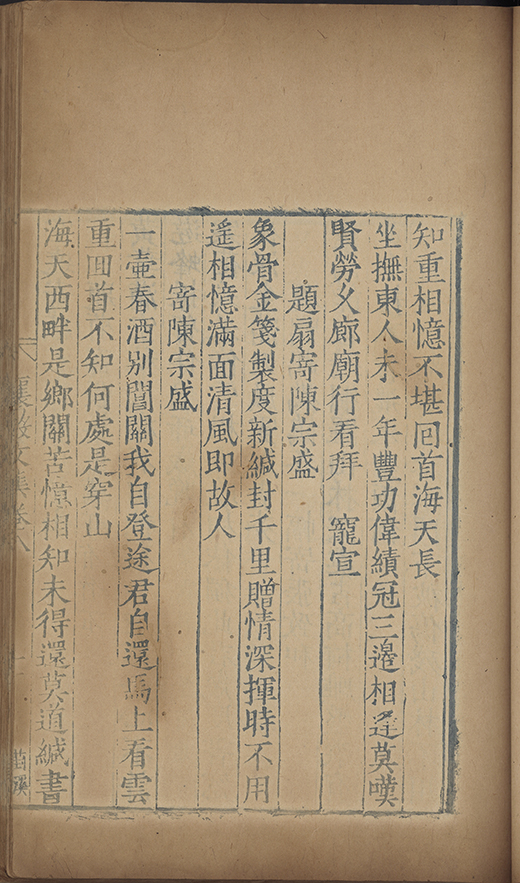 知重相憶不堪回首海天長
坐撫東人未一年豐功偉績冠三邊相逢莫嘆
賢勞久廊廟行看拜　寵宣
題扇寄陳宗盛
象骨金箋製度新緘封千里贈情深揮時不用
遥相憶滿面清風即故人
寄陳宗盛
一壷春酒别闔關我自登途君自還馬上看雲
重回首不知何處是穿山
海天西畔是鄉關苦憶相知未得還莫道緘書
襄毅文集卷八